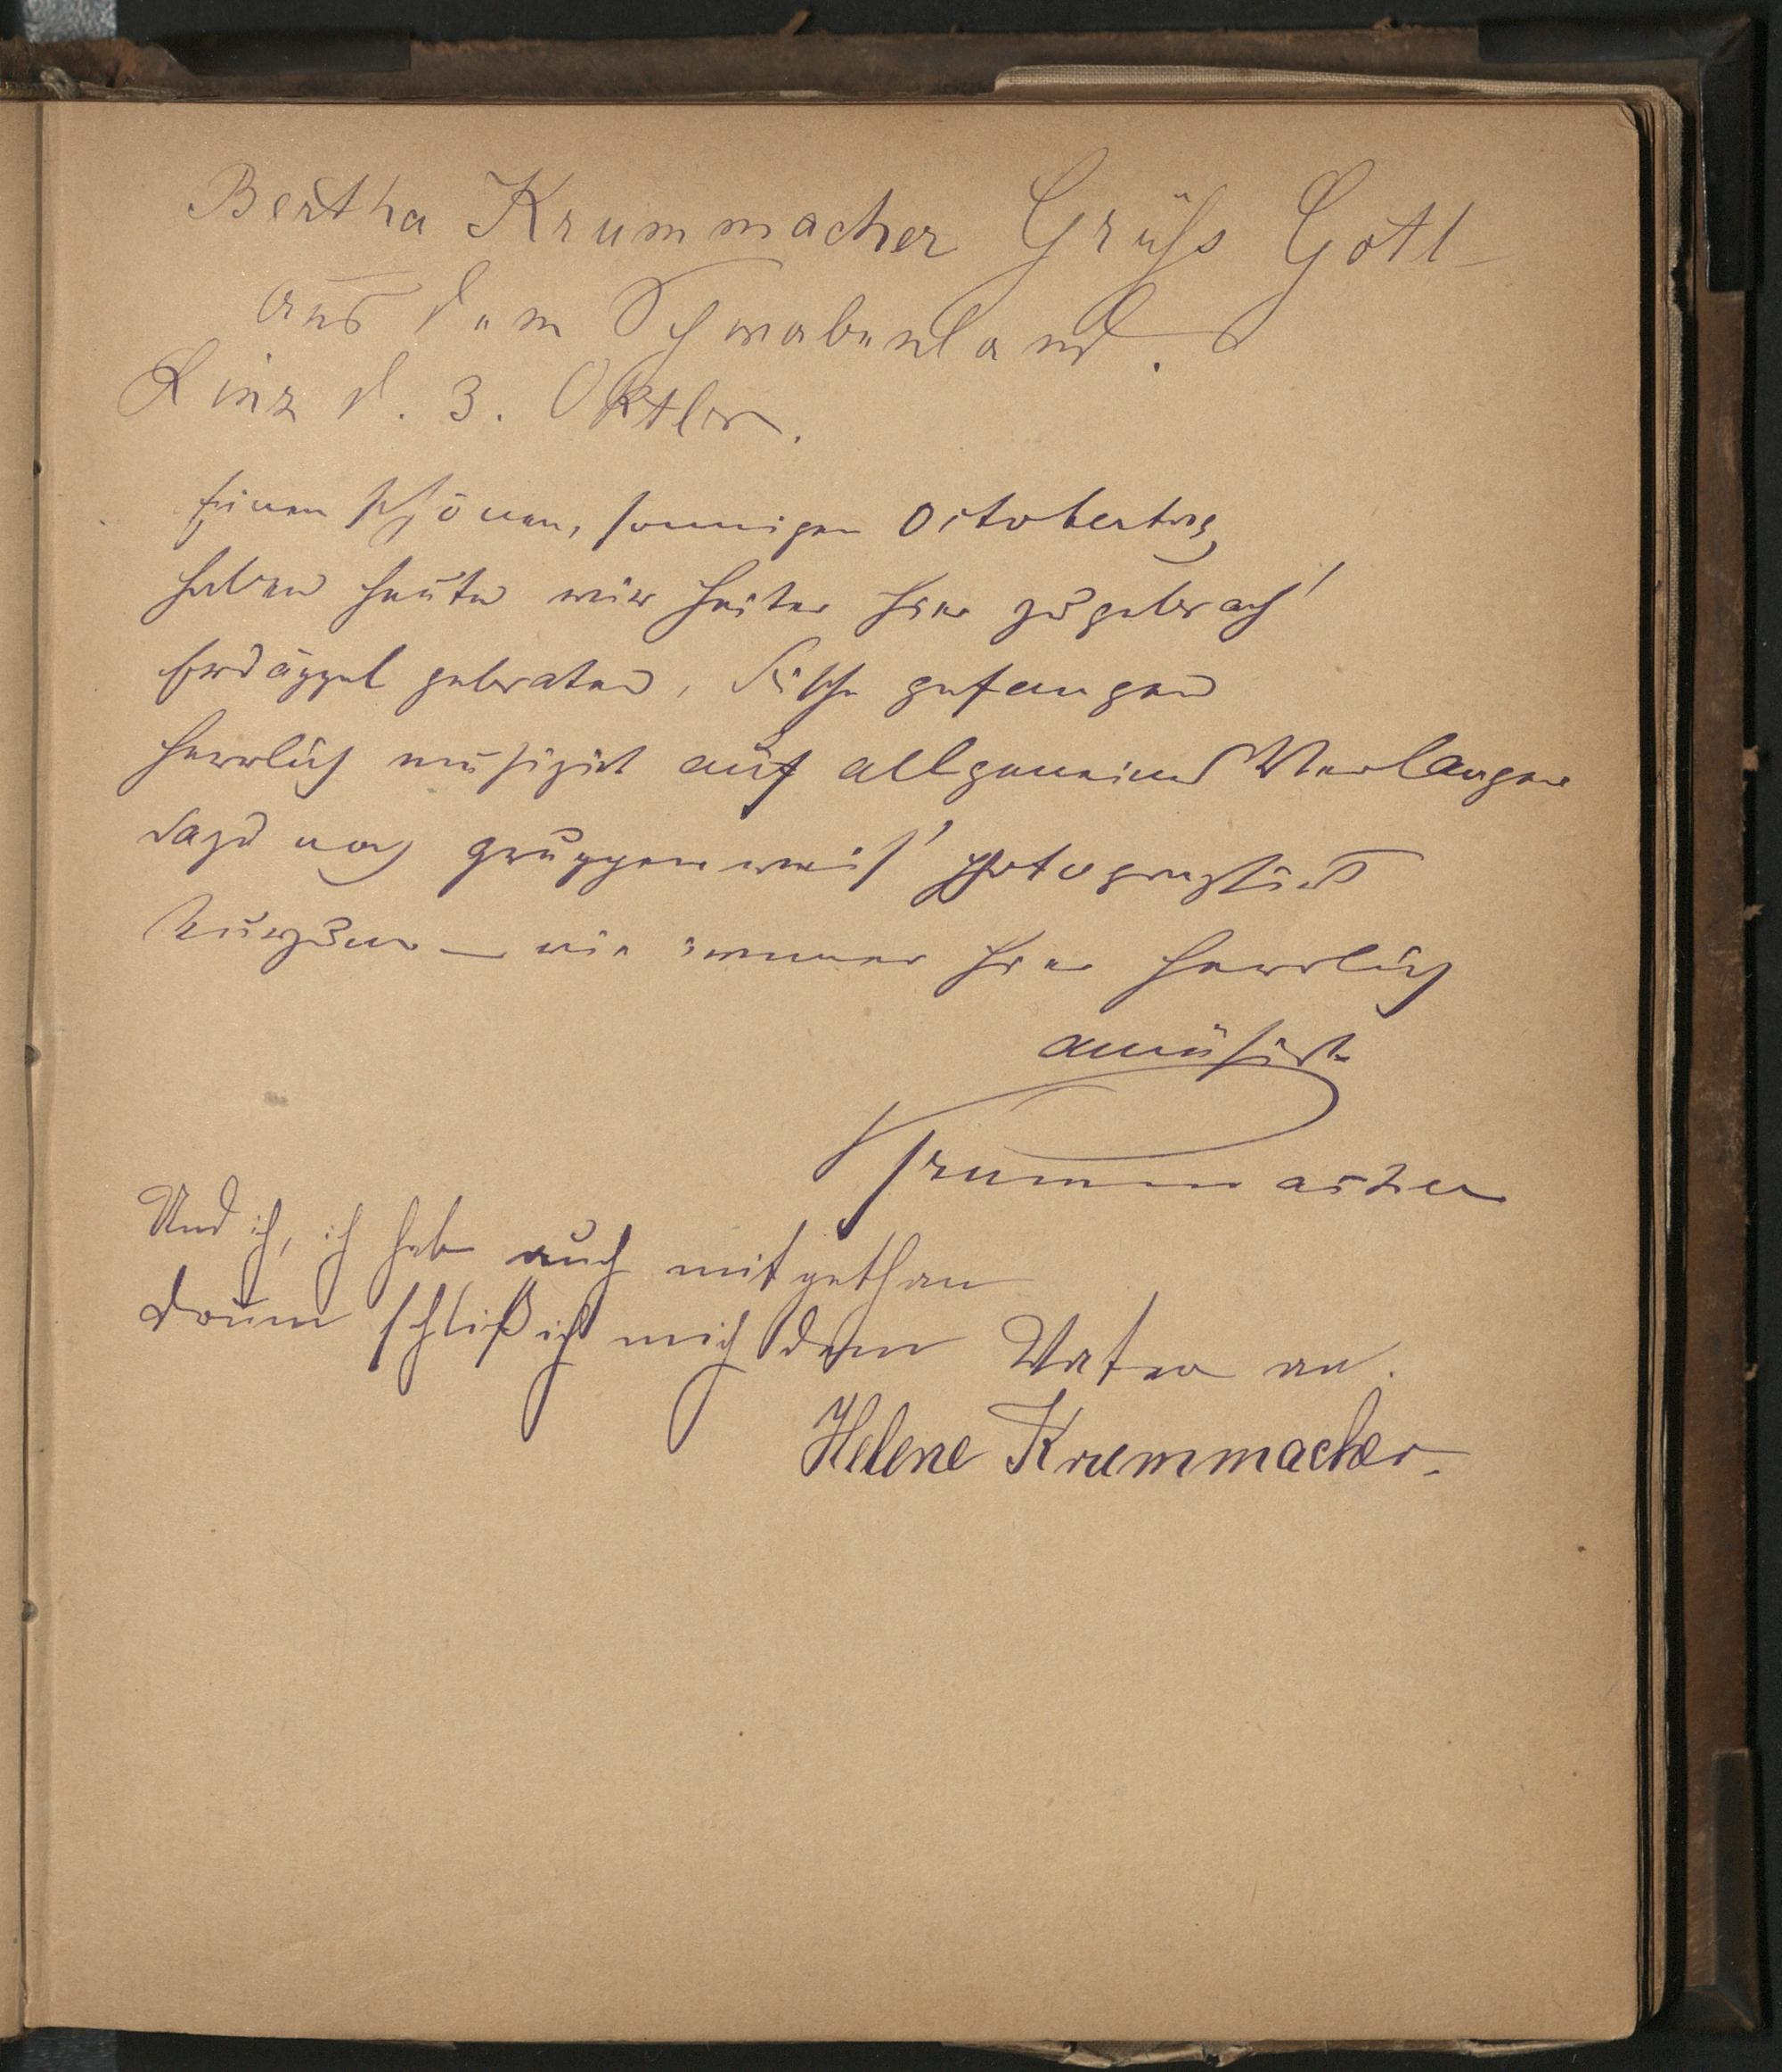 Bertha Krummacher Grüß Gott
aus dem Schwabenland.
Linz d. 3. Oktbr.
Einen schönen, sonnigen Octobertag
haben heute wir heiter hier zugebrach'
Erdäppel gebraten, Fische gefangen
herrlich musizirt auf allgemeines Verlangen
dazu noch gruppenweis' photographirt
kurzum – wie immer hier herrlich
amüsirt.
Krummacher
Und ich, ich habe auch mitgethan
Drum schließ ich mich dem Vater an.
Helene Krummacher.